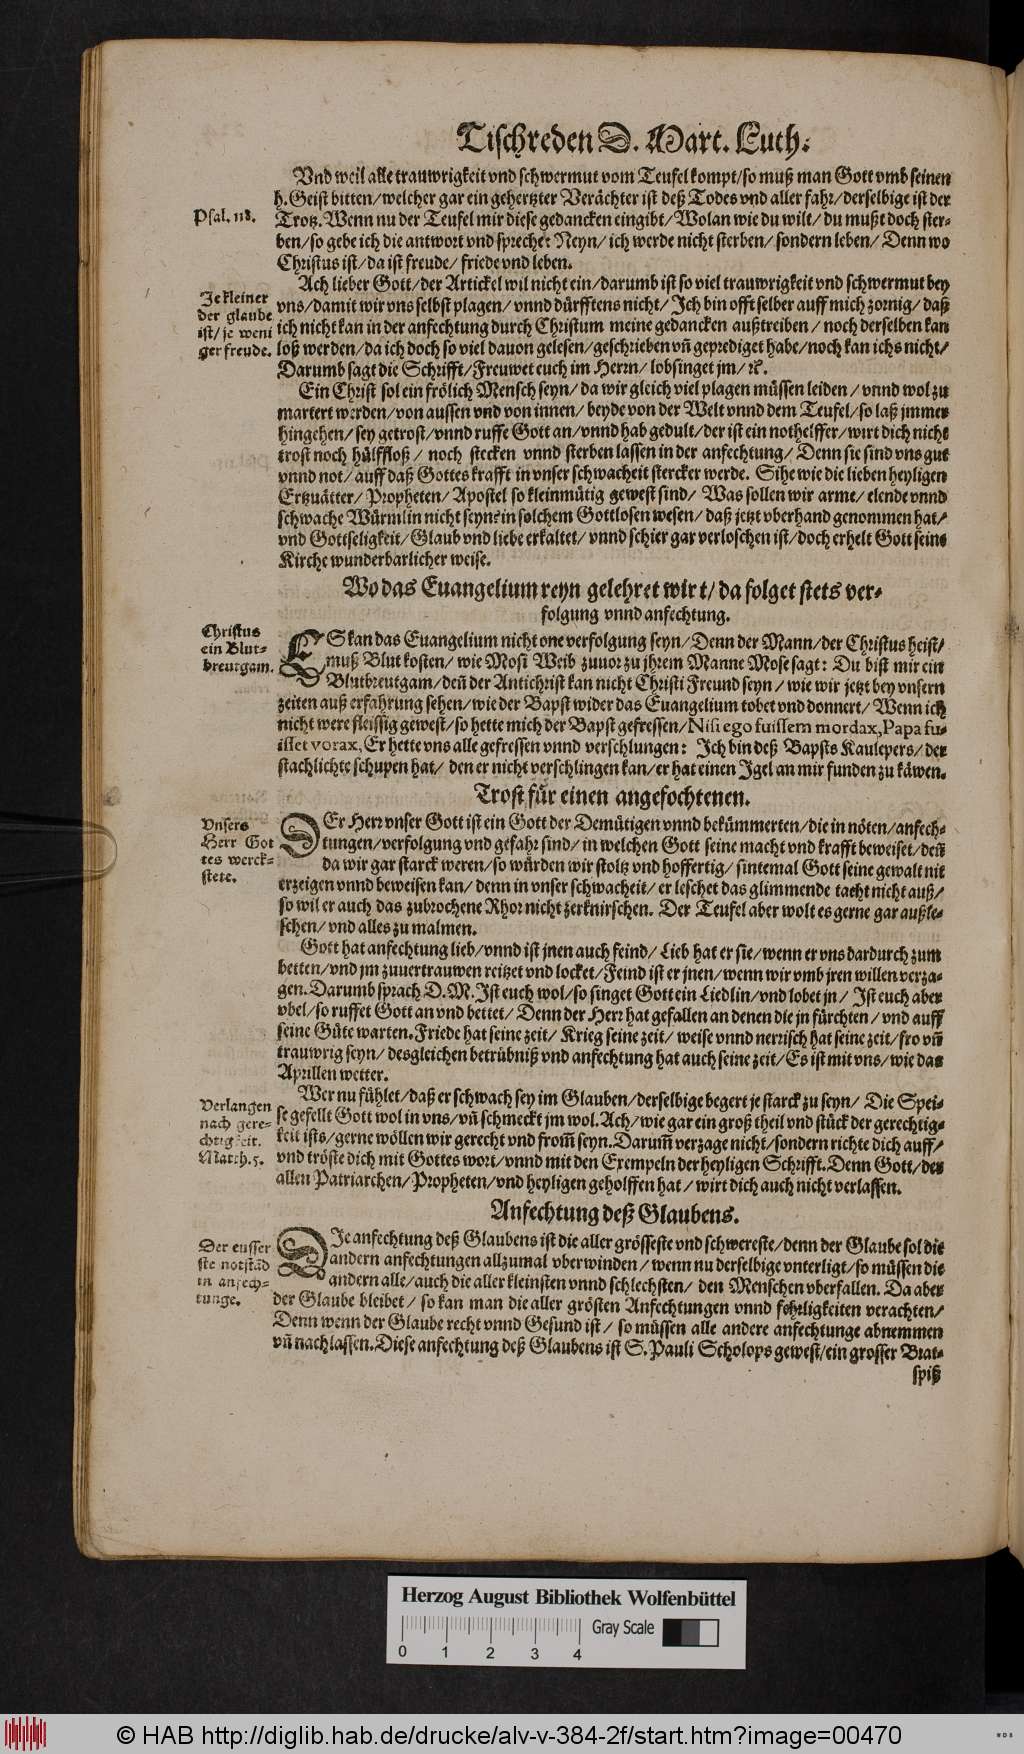 Tischreden D. Mart. Luth.
Vnd weil alle trauwrigkeit vnd schwermut vom Teufel kompt/so muß man Gott vmb seinen
h. Geist bitten/welcher gar ein gehertzter Verächter ist deß Todes vnd aller fahr/derselbige ist der
Psal. 118.
Trotz. Wenn nu der Teufel mir diese gedancken eingibt/Wolan wie du wilt/du mußt doch ster-
ben/so gebe ich die antwort vnd spreche: Neyn/ich werde nicht sterben/sondern leben/Denn wo
Christus ist/da ist freude/friede vnd leben.
Ach lieber Gott/der Artickel wil nicht ein/darumb ist so viel trauwrigkeit vnd schwermut bey
Je kleiner
der glaube
ist/je weni
ger freude.
vns/damit wir vns selbst plagen/vnnd dürfftens nicht/Ich bin offt selber auff mich zornig/daß
ich nicht kan in der anfechtung durch Christum meine gedancken außtreiben/noch derselben kan
loß werden/da ich doch so viel dauon gelesen/geschrieben vñ geprediget habe/noch kan ichs nicht/
Darumb sagt die Schrifft/Freuwet euch im Herrn/lobsinget jm/ꝛc.
Ein Christ sol ein frölich Mensch seyn/da wir gleich viel plagen müssen leiden/vnnd wol zu
martert werden/von aussen vnd von innen/beyde von der Welt vnnd dem Teufel/so laß jmmer
hingehen/sey getrost/vnnd ruffe Gott an/vnnd hab gedult/der ist ein nothelffer/wirt dich nicht
trost noch hülffloß/noch stecken vnnd sterben lassen in der anfechtung/Denn sie sind vns gut
vnnd not/auff daß Gottes krafft in vnser schwacheit stercker werde. Sihe wie die lieben heyligen
Ertzuätter/Propheten/Apostel so kleinmütig gewest sind/Was sollen wir arme/elende vnnd
schwache Würmlin nicht seyn? in solchem Gottlosen wesen/daß jetzt vberhand genommen hat/
vnd Gottseligkeit/Glaub vnd liebe erkaltet/vnnd schier gar verloschen ist/doch erhelt Gott seine
Kirche wunderbarlicher weise.
Wo das Euangelium reyn gelehret wirt/da folget stets ver-
folgung vnnd anfechtung.
Christus
ein Blut-
breutgam.
ES kan das Euangelium nicht one verfolgung seyn/Denn der Mann/der Christus heist/
muß Blut kosten/wie Mosi Weib zuuor zu jhrem Manne Mose sagt: Du bist mir ein
Blutbreutgam/deñ der Antichrist kan nicht Christi Freund seyn/wie wir jetzt bey vnsern
zeiten auß erfahrung sehen/wie der Bapst wider das Euangelium tobet vnd donnert/Wenn ich
nicht were fleissig gewest/so hette mich der Bapst gefressen/Nisi ego fuissem mordax, Papa fu-
isset vorax, Er hette vns alle gefressen vnnd verschlungen: Ich bin deß Bapsts Kaulepers/der
stachlichte schupen hat/den er nicht verschlingen kan/er hat einen Igel an mir funden zu käwen.
Trost für einen angefochtenen.
Vnsers
Herr Got
tes werck-
stete.
DEr Herr vnser Gott ist ein Gott der Demütigen vnnd bekümmerten/die in nöten/anfech-
tungen/verfolgung vnd gefahr sind/in welchen Gott seine macht vnd krafft beweiset/deñ
da wir gar starck weren/so würden wir stoltz vnd hoffertig/sintemal Gott seine gewalt nit
erzeigen vnnd beweisen kan/denn in vnser schwacheit/er leschet das glimmende tacht nicht auß/
so wil er auch das zubrochene Rhor nicht zerknirschen. Der Teufel aber wolt es gerne gar außle-
schen/vnd alles zu malmen.
Gott hat anfechtung lieb/vnnd ist jnen auch feind/Lieb hat er sie/wenn er vns dardurch zum
betten/vnd jm zuuertrauwen reitzet vnd locket/Feind ist er jnen/wenn wir vmb jren willen verza-
gen. Darumb sprach D. M. Ist euch wol/so singet Gott ein Liedlin/vnd lobet jn/Ist euch aber
vbel/so ruffet Gott an vnd bettet/Denn der Herr hat gefallen an denen die jn fürchten/vnd auff
seine Güte warten. Friede hat seine zeit/Krieg seine zeit/weise vnnd nerrisch hat seine zeit/fro vñ
trauwrig seyn/desgleichen betrübniß vnd anfechtung hat auch seine zeit/Es ist mit vns/wie das
Aprillen wetter.
Verlangen
nach gere-
chtigkeit.
Matth. 5.
Wer nu fühlet/daß er schwach sey im Glauben/derselbige begert je starck zu seyn/Die Spei-
se gefellt Gott wol in vns/vñ schmeckt jm wol. Ach/wie gar ein groß theil vnd stück der gerechtig-
keit ists/gerne wöllen wir gerecht vnd from̃ seyn. Darum̃ verzage nicht/sondern richte dich auff/
vnd tröste dich mit Gottes wort/vnnd mit den Exempeln der heyligen Schrifft. Denn Gott/der
allen Patriarchen/Propheten/vnd heyligen geholffen hat/wirt dich auch nicht verlassen.
Anfechtung deß Glaubens.
Der eusser
ste notstãd
in anfech-
tunge.
DJe anfechtung deß Glaubens ist die aller grösseste vnd schwereste/denn der Glaube sol die
andern anfechtungen allzumal vberwinden/wenn nu derselbige vnterligt/so müssen die
andern alle/auch die aller kleinsten vnnd schlechsten/den Menschen vberfallen. Da aber
der Glaube bleibet/so kan man die aller grösten Anfechtungen vnnd fehrligkeiten verachten/
Denn wenn der Glaube recht vnnd Gesund ist/so müssen alle andere anfechtunge abnemmen
vñ nachlassen. Diese anfechtung deß Glaubens ist S. Pauli Scholops gewest/ein grosser Brat-
spiß
Herzog August Bibliothek Wolfenbüttel
Gray Scale
0 1 2 3 4
© HAB http://diglib.hab.de/drucke/alv-v-384-2f/start.htm?image=00470